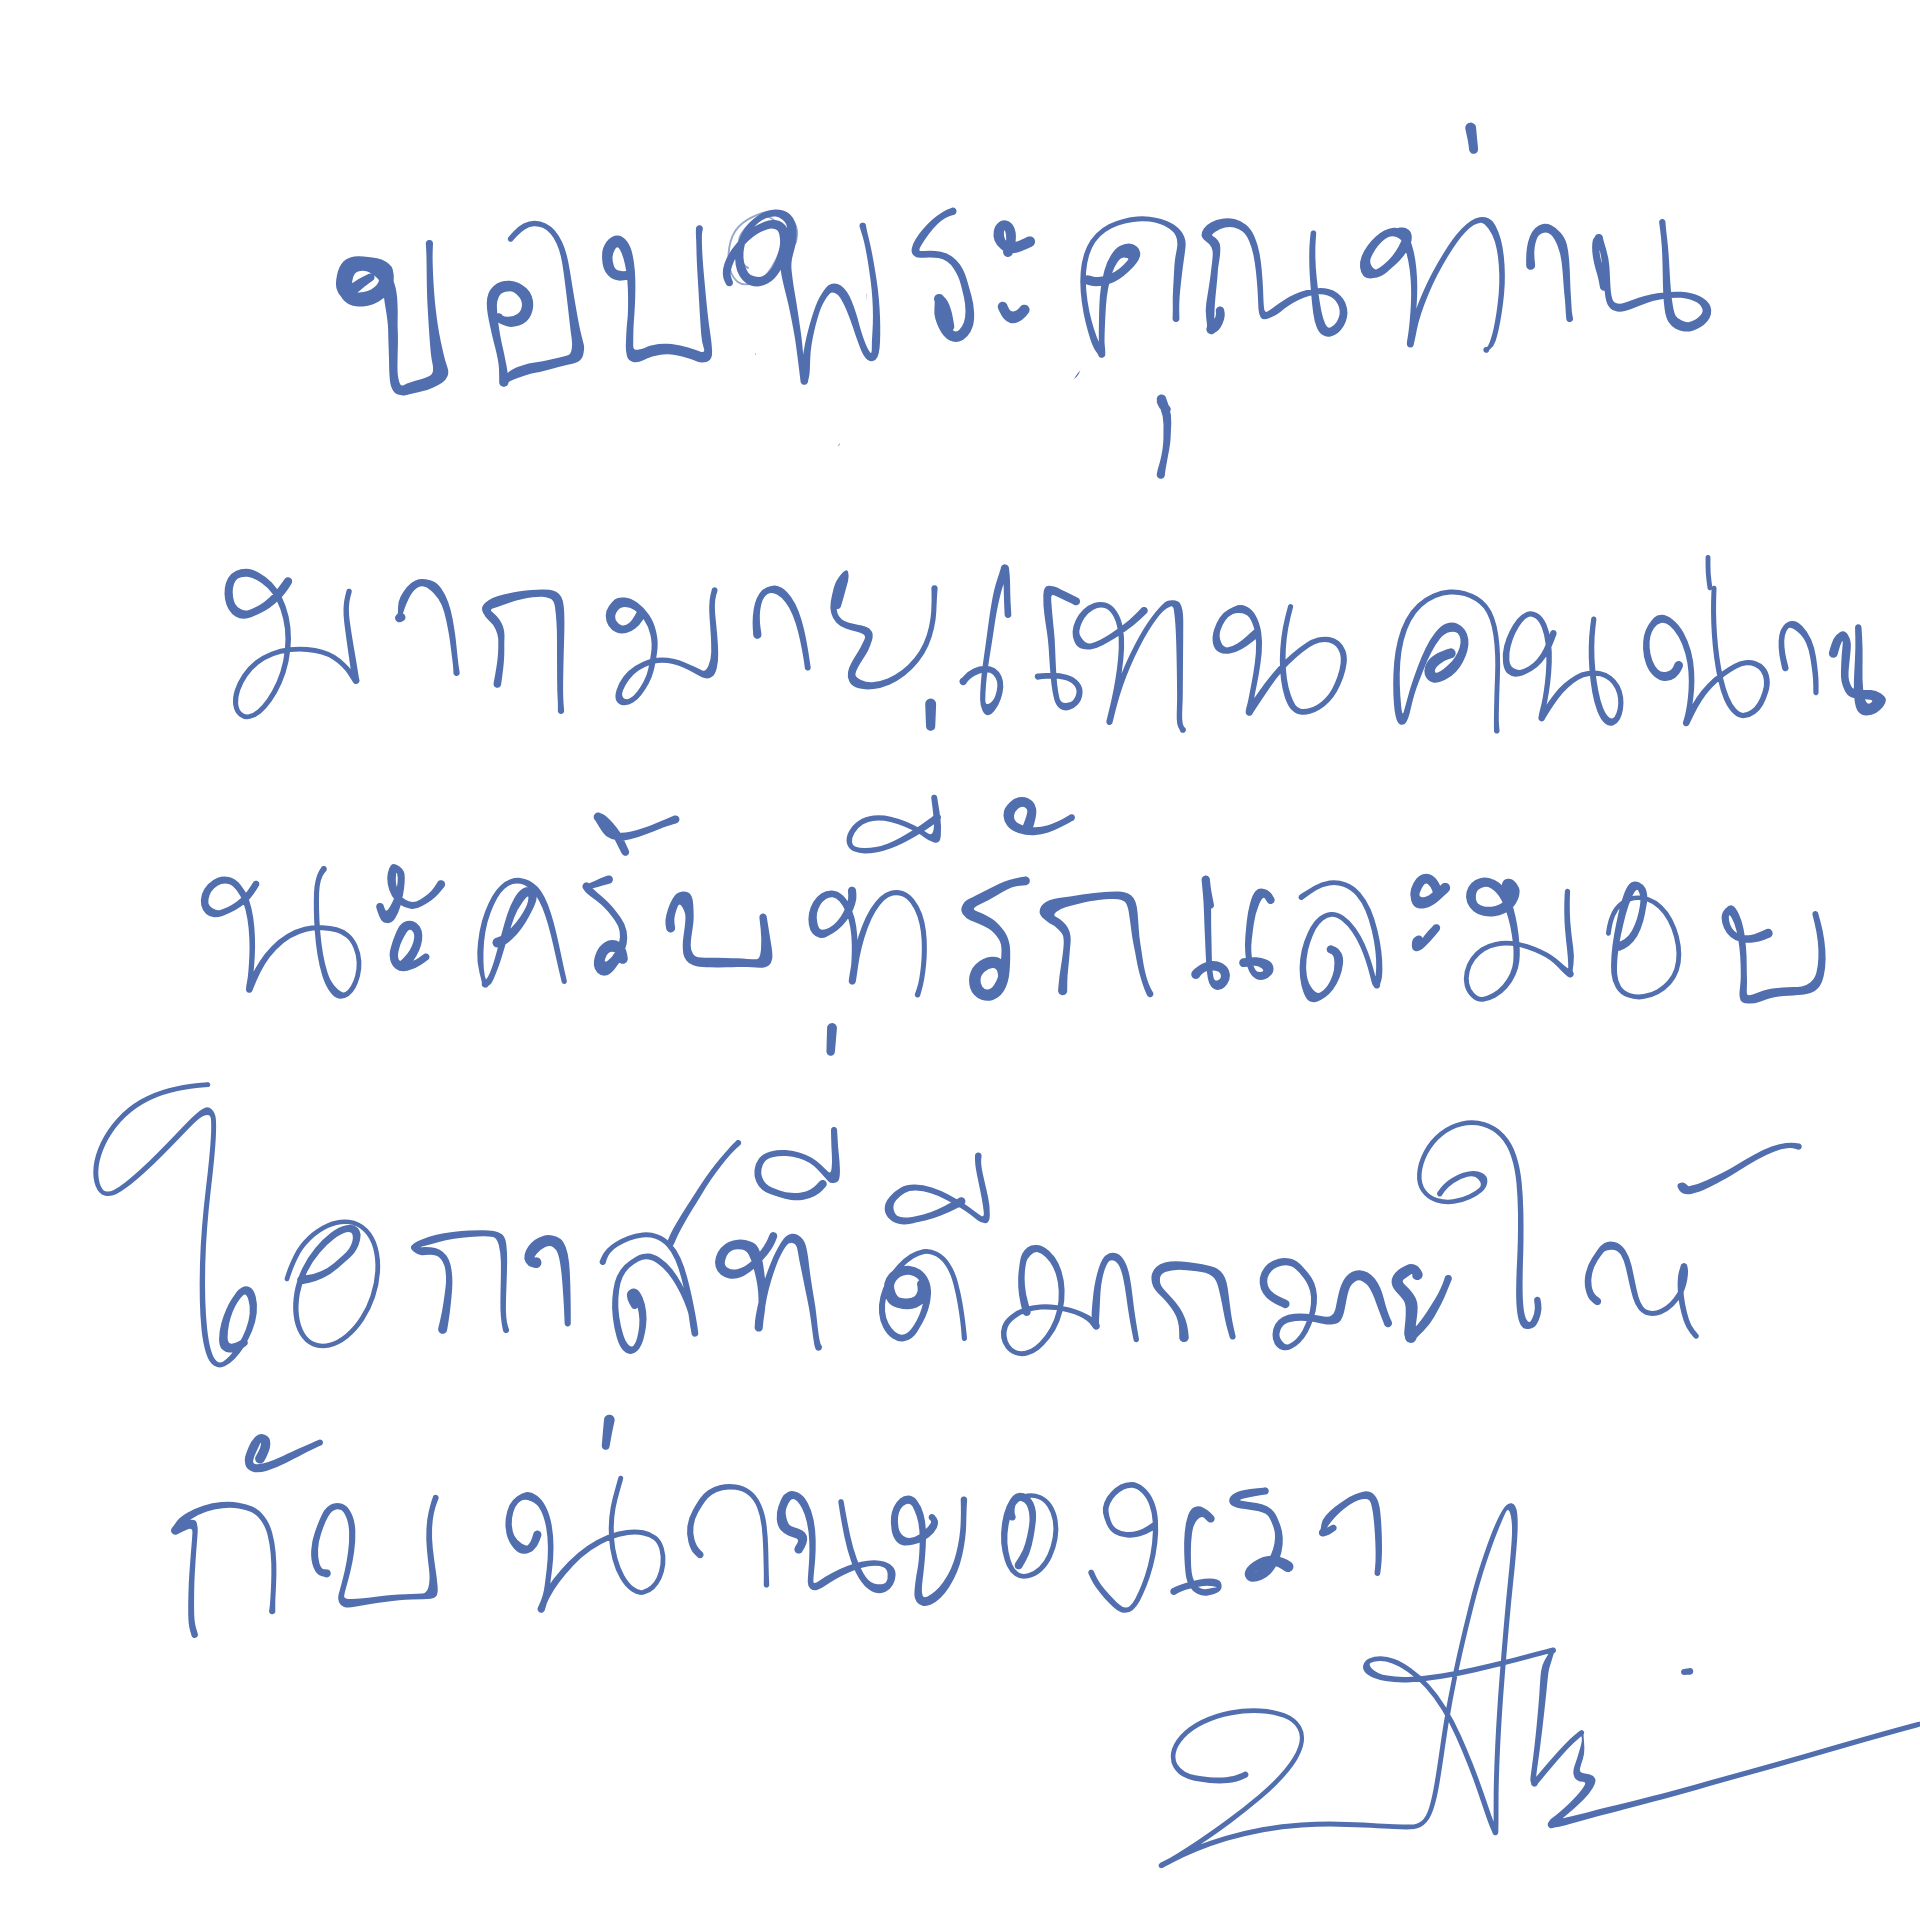 ขอบพระคุณท่าน
มากมายแทนคนน่าน
นะครับที่รักและมอบ
โอกาสที่ดีมากมายให้
กับน่านของเรา